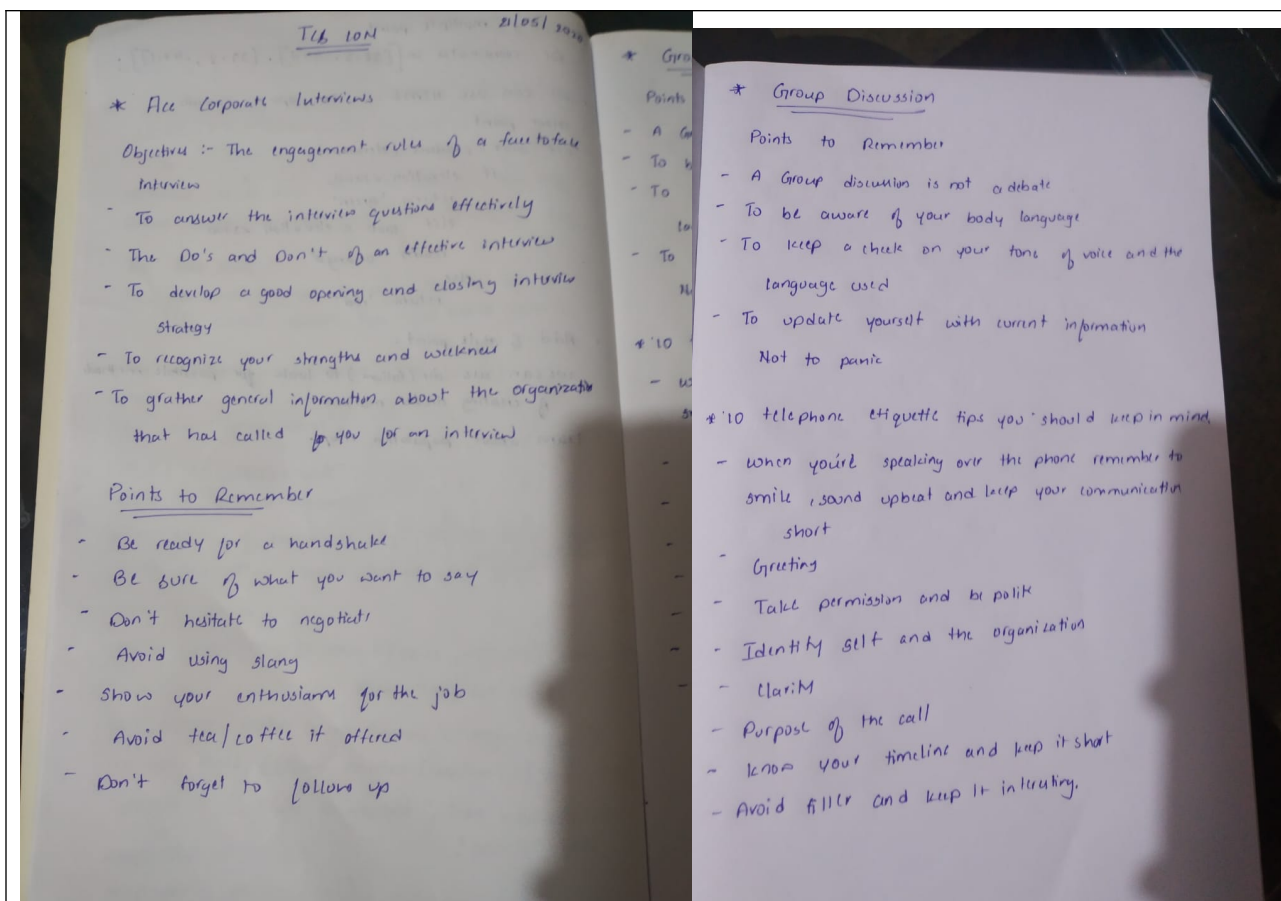 21/05/2020
* Ace Corporate Interviews
Objectives :- The engagement rules of a face to face
interview
- To answer the interview questions effectively
- The Do's and Don't of an effective interview
- To develop a good opening and closing interview
strategy
- To recognize your strengths and weekness
- To grather general information about the organization
that has called you for an interview
Points to Remember
- Be ready for a handshake
- Be sure of what you want to say
- Don't hesitate to negotiate
- Avoid using slang
- Show your enthusiasm for the job
- Avoid tea/coffee if offered
- Don't forget to follow up
* Gro
Points
- A Gr
- To b
- To
la
- To
N
* 10
- w
s
* Group Discussion
Points to Remember
- A Group discussion is not a debate
- To be aware of your body language
- To keep a check on your tone of voice and the
language used
- To update yourself with current information
Not to panic
* 10 telephone etiquette tips you should keep in mind.
- When you're speaking over the phone remember to
smile, sound upbeat and keep your communication
short
- Greeting
- Take permission and be polite
- Identify self and the organization
- Clarity
- Purpose of the call
- Know your timeline and keep it short
- Avoid filler and keep it interesting.